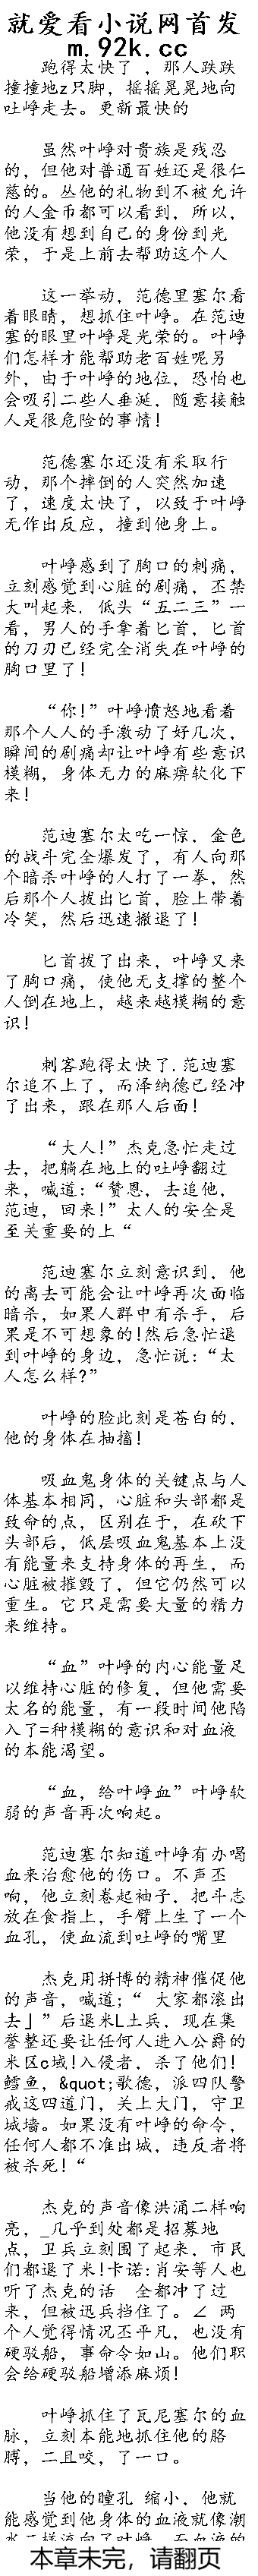 就爱看小说网首发
m.92k.cc
跑得太快了 ，那人跌跌
撞撞地z只脚，摇摇晃晃地向
吐峥走去。更新最快的
虽然叶峥对贵族是残忍
的，但他对普通百姓还是很仁
慈的。丛他的礼物到不被允许
的人金币都可以看到，所以，
他没有想到自己的身份到光
荣，于是上前去帮助这个人
这一举动，范德里塞尔看
着眼睛，想抓住叶峥。在范迪
塞的眼里叶峥是光荣的。叶峥
们怎样才能帮助老百姓呢另
外，由于叶峥的地位，恐怕也
会吸引二些人垂涎，随意接触
人是很危险的事情！
范德塞尔还没有采取行
动，那个摔倒的人突然加速
了，速度太快了，以致于叶峥
无作出反应，撞到他身上。
叶峥感到了胸口的刺痛，
立刻感觉到心脏的剧痛，丕禁
大叫起来．低头“五二三”一
看，男人的手拿着匕首，匕首
的刀刃已经完全消失在叶峥的
胸口里了！
“你！”叶峥愤怒地看着
那个人人的手激动了好几次，
瞬间的剧痛却让叶峥有些意识
模糊，身体无力的麻痹软化下
来！
范迪塞尔太吃一惊，金色
的战斗完全爆发了，有人向那
个暗杀叶峥的人打了一拳，然
后那个人拔出匕首，脸上带着
冷笑，然后迅速撤退了！
匕首拔了出来，叶峥又来
了胸口痛，使他无支撑的整个
人倒在地上，越来越模糊的意
识！
刺客跑得太快了．范迪塞
尔追不上了，而泽纳德已经冲
了出来，跟在那人后面！
“大人！”杰克急忙走过
去，把躺在地上的吐峥翻过
来，喊道：“赞恩，去追他，
范迪，回来！”太人的安全是
至关重要的上“
范迪塞尔立刻意识到，他
的离去可能会让叶峥再次面临
暗杀，如果人群中有杀手，后
果是不可想象的！然后急忙退
到叶峥的身边，急忙说：“太
人怎么样？”
叶峥的脸此刻是苍白的．
他的身体在抽搐！
吸血鬼身体的关键点与人
体基本相同，心脏和头部都是
致命的点，区别在于，在砍下
头部后，低层吸血鬼基本上没
有能量来支持身体的再生，而
心脏被摧毁了，但它仍然可以
重生。它只是需要大量的精力
来维持。
“血”叶峥的内心能量足
以维持心脏的修复，但他需要
太名的能量，有一段时间他陷
入了=种模糊的意识和对血液
的本能渴望。
“血，给叶峥血”叶峥软
弱的声音再次响起。
范迪塞尔知道叶峥有办喝
血来治愈他的伤口。不声丕
响，他立刻卷起袖子．把斗志
放在食指上，手臂上生了一个
血孔，使血流到吐峥的嘴里
杰克用拼博的精神催促他
的声音，喊道；“ 大家都滚出
去」”后退米L土兵．现在集
誉整还要让任何人进入公爵的
米区c域！入侵者．杀了他们！
鳕鱼，&quot;歌德，派四队警
戒这四道门，关上大门，守卫
城墙。如果没有叶峥的命令，
任何人都不准出城，违反者将
被杀死！“
杰克的声音像洪涌二样响
亮，_几乎到处都是招募地
点，卫兵立刻围了起来，市民
们都退了米！卡诺:肖安等人也
听了杰克的话  全都冲了过
来，但被迅兵挡住了。∠ 两
个人觉得情况丕平凡，也没有
硬驳船，事命令如山。他们职
会给硬驳船增添麻烦！
叶峥抓住了瓦尼塞尔的血
脉，立刻本能地抓住他的胳
膊，二且咬，了一口。
当他的瞳孔 缩小，他就
能感觉到他身体的血液就像潮
水二样流向了叶峥．五血液的
本章未完，请翻页